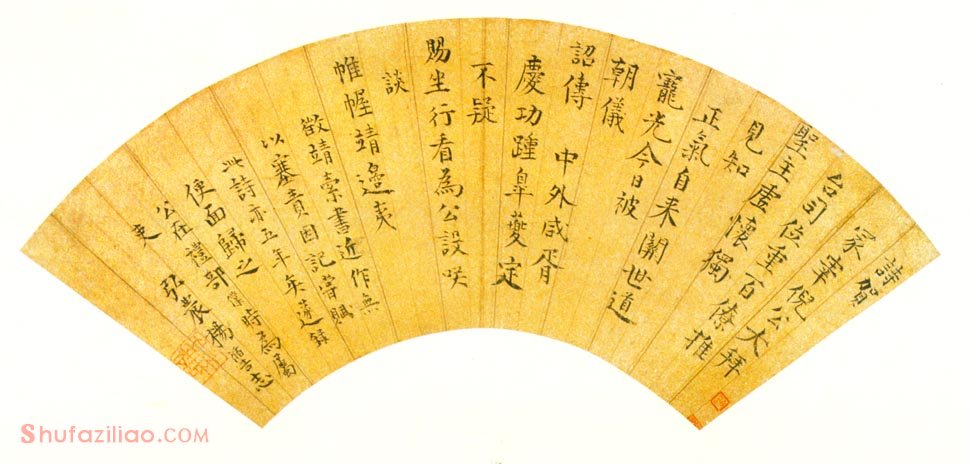 詩賀
冢宰倪公大拜
台司位重百僚推
聖主虛懷獨
見知
正氣自来關世道
寵光今日被
朝儀
詔傳中外咸胥
慶功踵皋夔定
不疑
賜坐行看為公設咲
談
帷幄靖邊夷
徵靖索書近作無
以塞責因記嘗賦
此詩亦五年矣遂録
便面歸之
公在禮部僕時為屬
吏弘農楊循吉志
Shufaziliao.COM